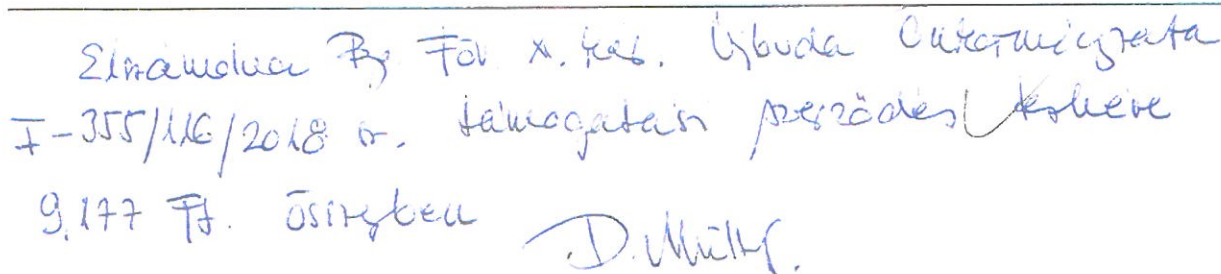 Elszámolva Bp Föv. XI. ker. Újbuda Önkormányzata
I-355/116/2018 sz. támogatási szerződés terhére
9.177 Ft. összegben
D. Müller